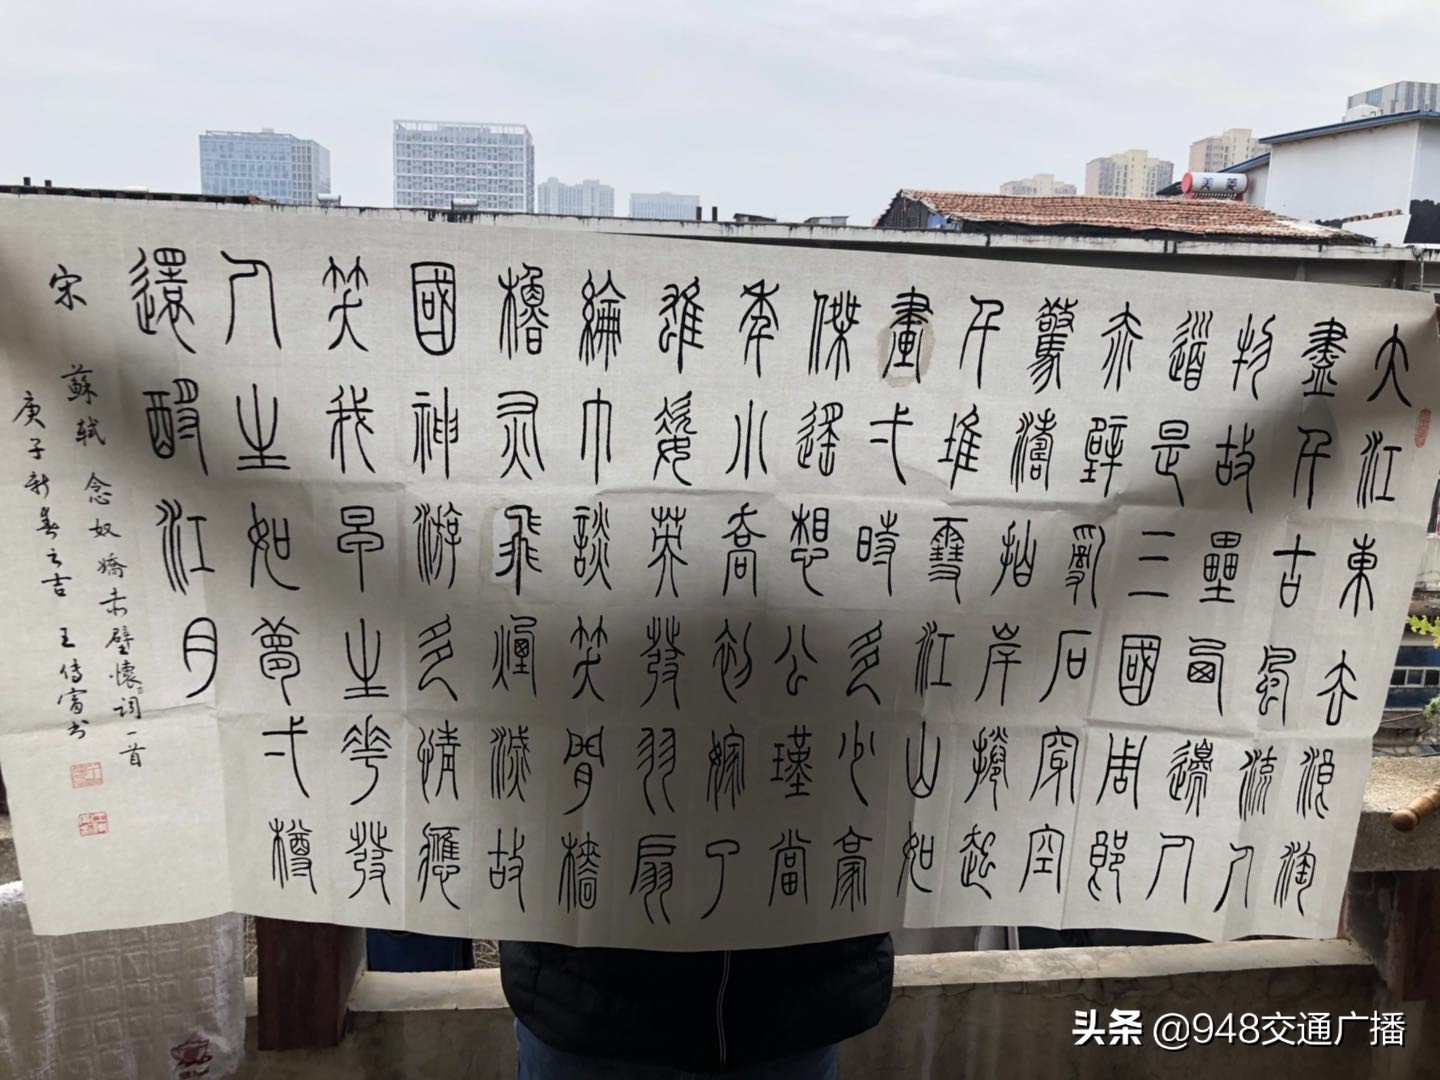 大江東去浪淘
盡千古風流人
物故壘西邊人
道是三國周郎
赤壁亂石穿空
驚濤拍岸捲起
千堆雪江山如
畫弌時多少豪
傑遙想公瑾當
年小喬初嫁了
雄姿英發羽扇
綸巾談笑間檣
櫓灰飛煙滅故
國神游多情應
笑我早生華發
人生如夢弌樽
還酹江月
宋 蘇軾 念奴嬌赤壁懷詞一首
庚子新春之吉 王傳富书
美菱
头条 @948交通广播